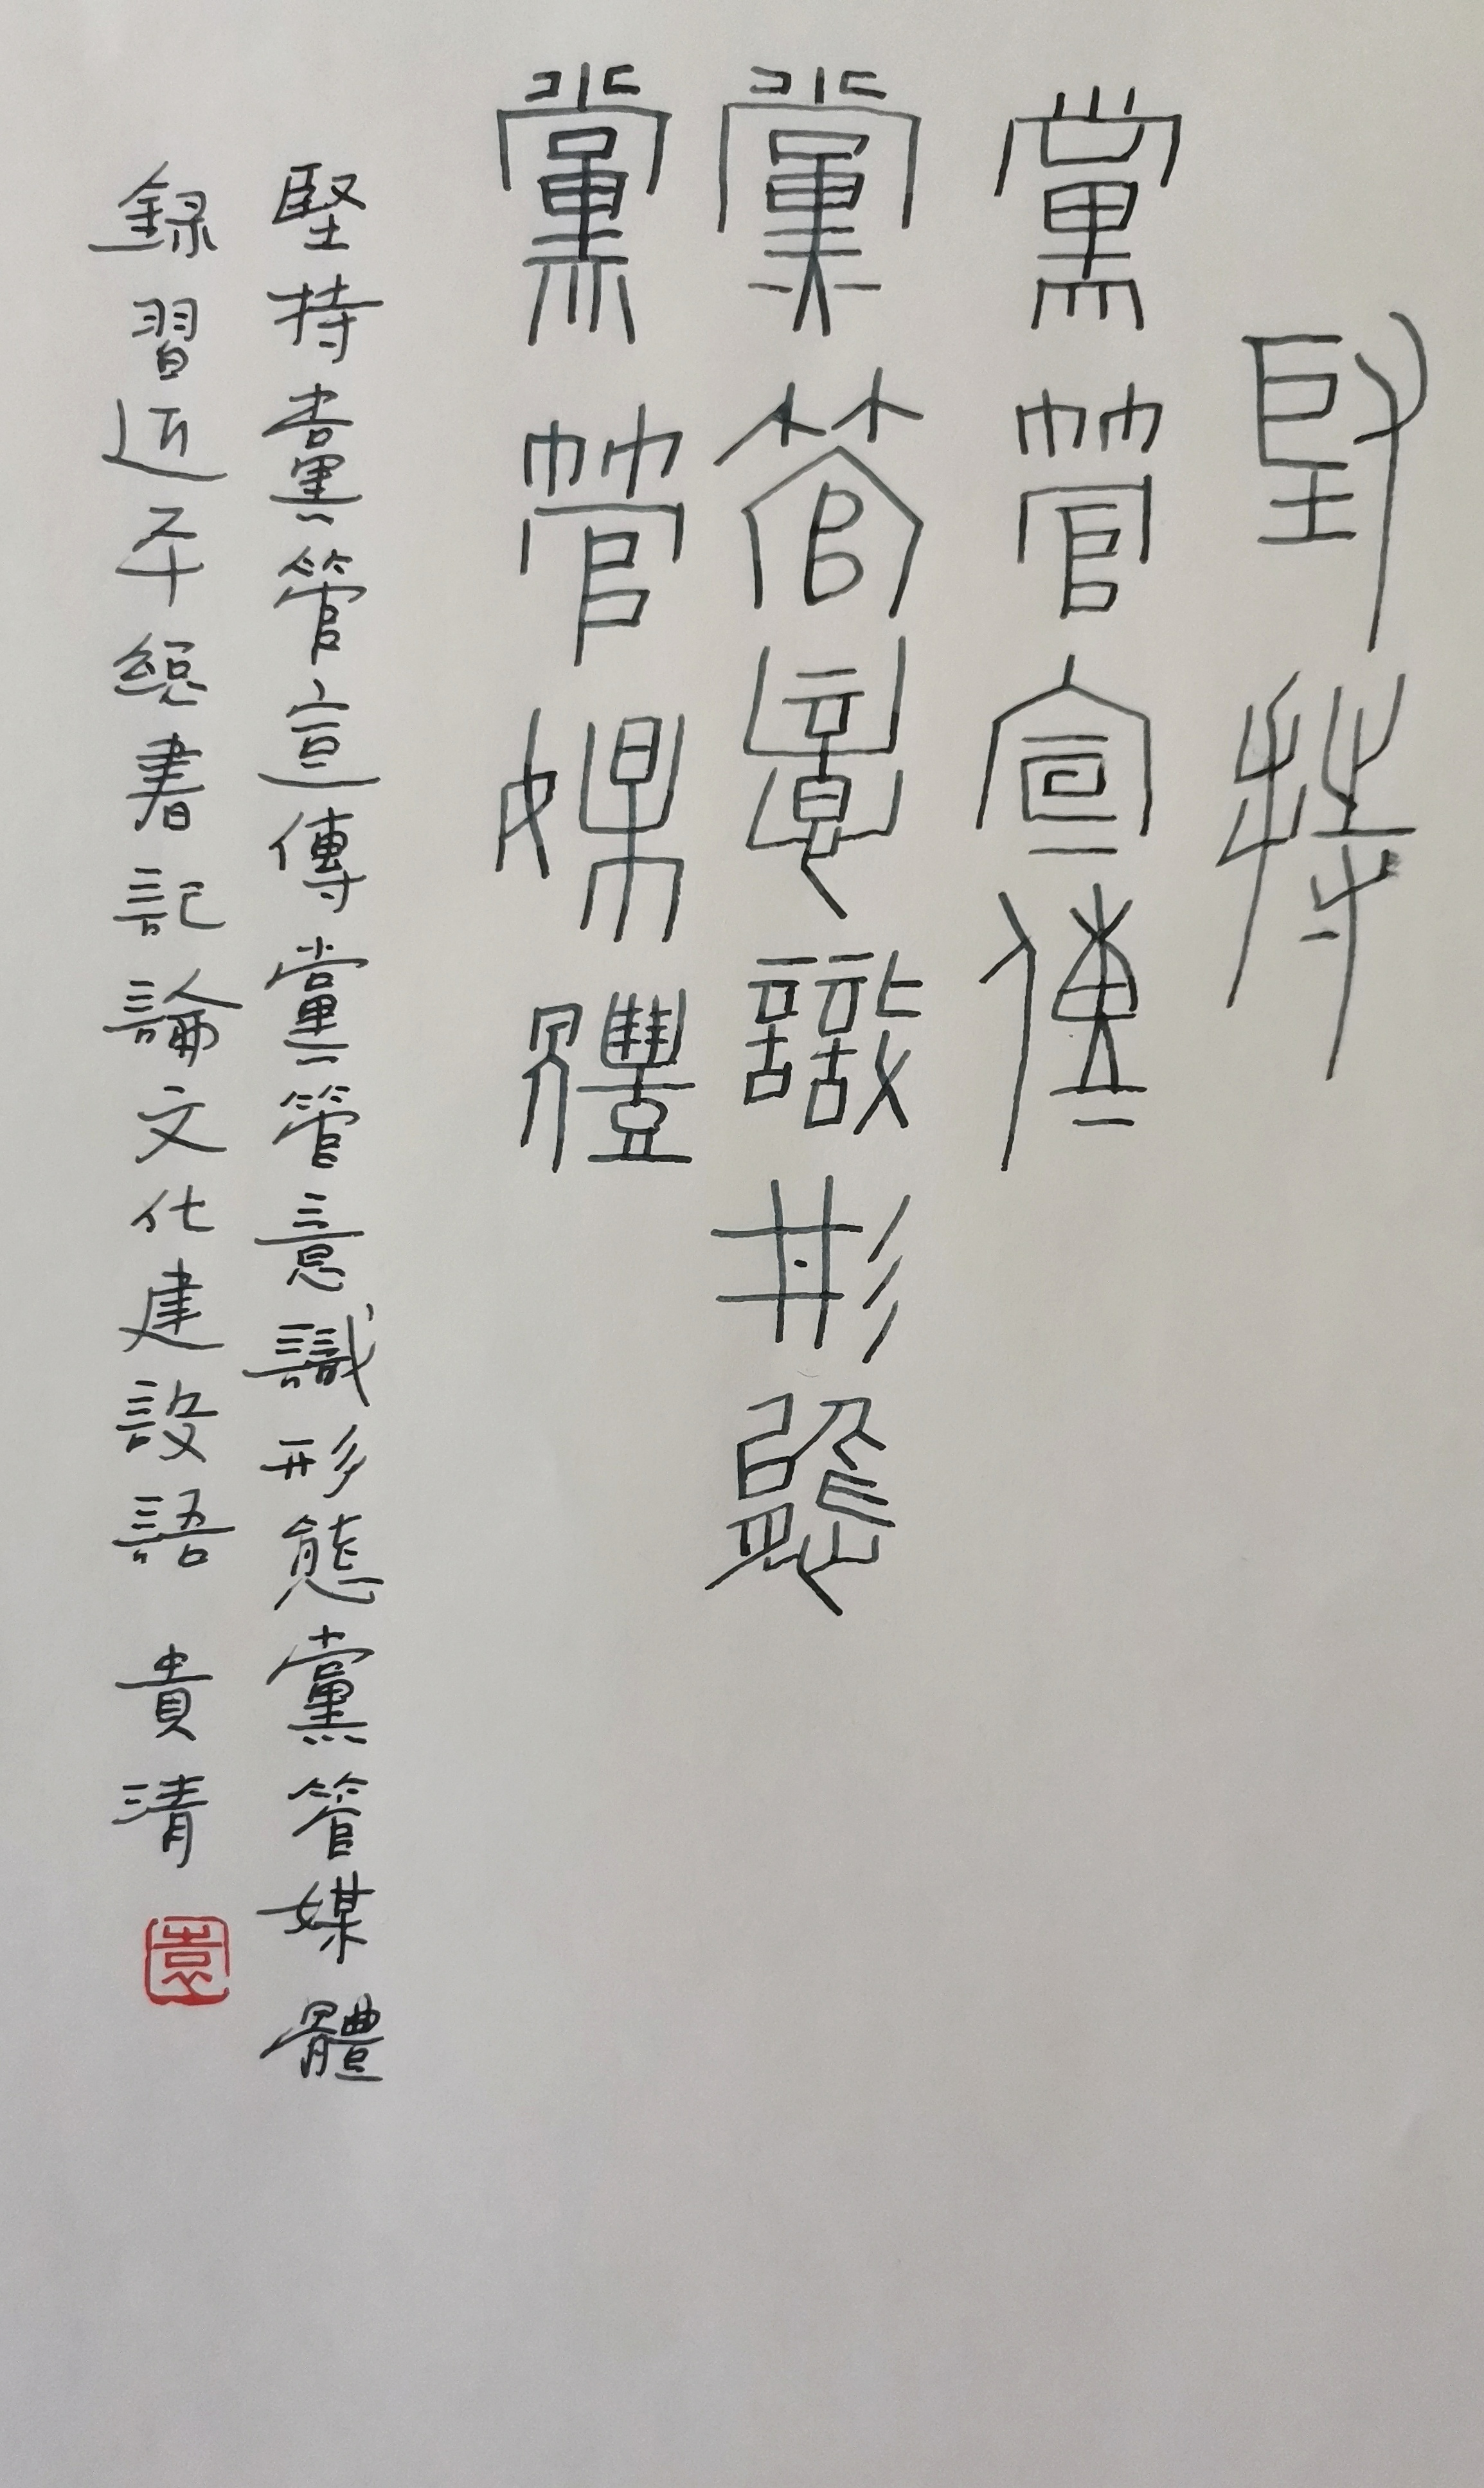 堅持
黨管宣傳
黨管意識形態
黨管媒體
堅持黨管宣傳黨管意識形態黨管媒體
錄習近平總書記論文化建設語 貴清